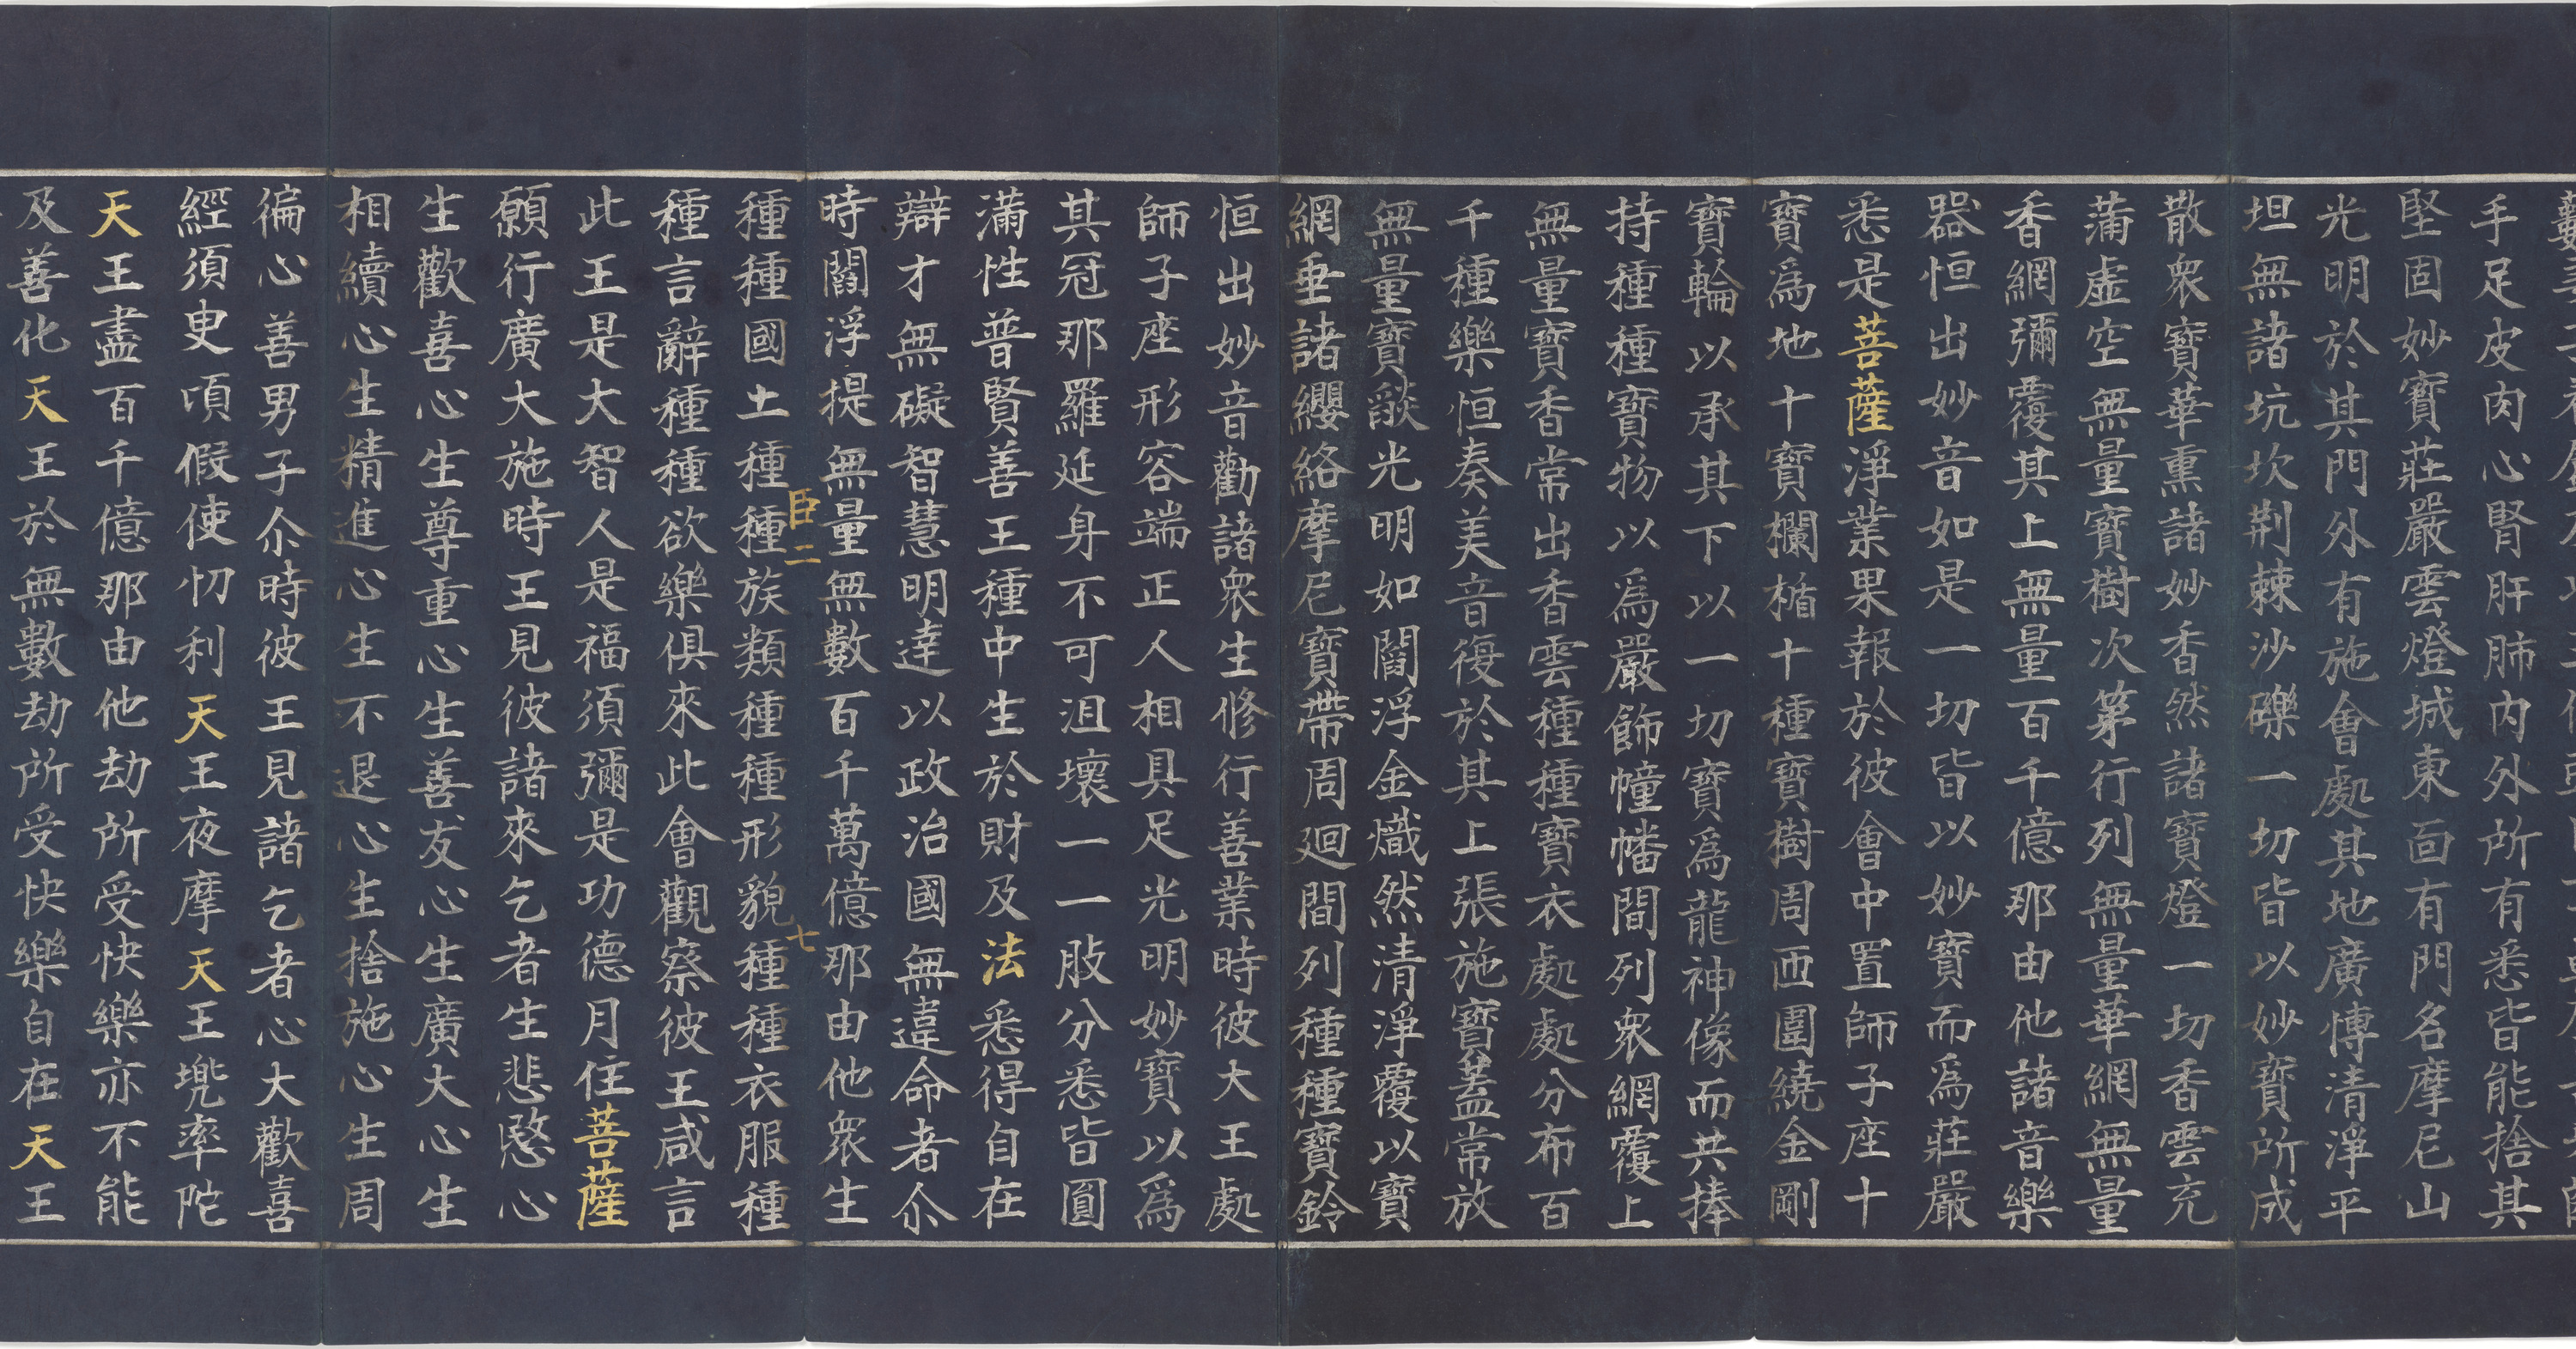 手足皮肉心腎肝肺内外所有悉皆能捨其
堅固妙寶莊嚴雲燈城東面有門名摩尼山
光明於其門外有施會處其地廣博清淨平
坦無諸坑坎荆棘沙礫一切皆以妙寶所成
散衆寶華熏諸妙香然諸寶燈一切香雲充
蒲虛空無量寶樹次第行列無量華網無量
香網彌覆其上無量百千億那由他諸音樂
器恒出妙音如是一切皆以妙寶而爲莊嚴
悉是菩薩淨業果報於彼會中置師子座十
寶爲地十寶欄楯十種寶樹周迊圍繞金剛
寶輪以承其下以一切寶爲龍神像而共捧
持種種寶物以爲嚴飾幢幡間列衆網覆上
無量寶香常出香雲種種寶衣處處分布百
千種樂恒奏美音復於其上張施寶蓋常放
無量寶燄光明如閻浮金熾然清淨覆以寶
網垂諸纓絡摩尼寶帶周迴間列種種寶鈴
恒出妙音勸諸衆生修行善業時彼大王處
師子座形容端正人相具足光明妙寶以爲
其冠那羅延身不可沮壞一一肢分悉皆圓
滿性普賢善王種中生於財及法悉得自在
辯才無礙智慧明達以政治國無違命者尒
時閻浮提無量無數百千萬億那由他衆生
臣二 七
種種國土種種族類種種形貌種種衣服種
種言辭種種欲樂俱來此會觀察彼王咸言
此王是大智人是福須彌是功德月住菩薩
願行廣大施時王見彼諸來乞者生悲愍心
生歡喜心生尊重心生善友心生廣大心生
相續心生精進心生不退心生捨施心生周
徧心善男子尒時彼王見諸乞者心大歡喜
經須臾頃假使忉利天王夜摩天王兜率陀
天王盡百千億那由他劫所受快樂亦不能
及善化天王於無數劫所受快樂自在天王